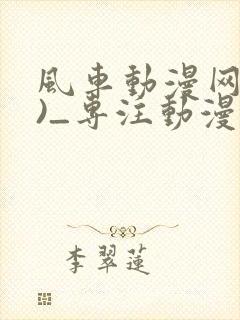 風車動漫网
)_专注動漫
李翠蓮